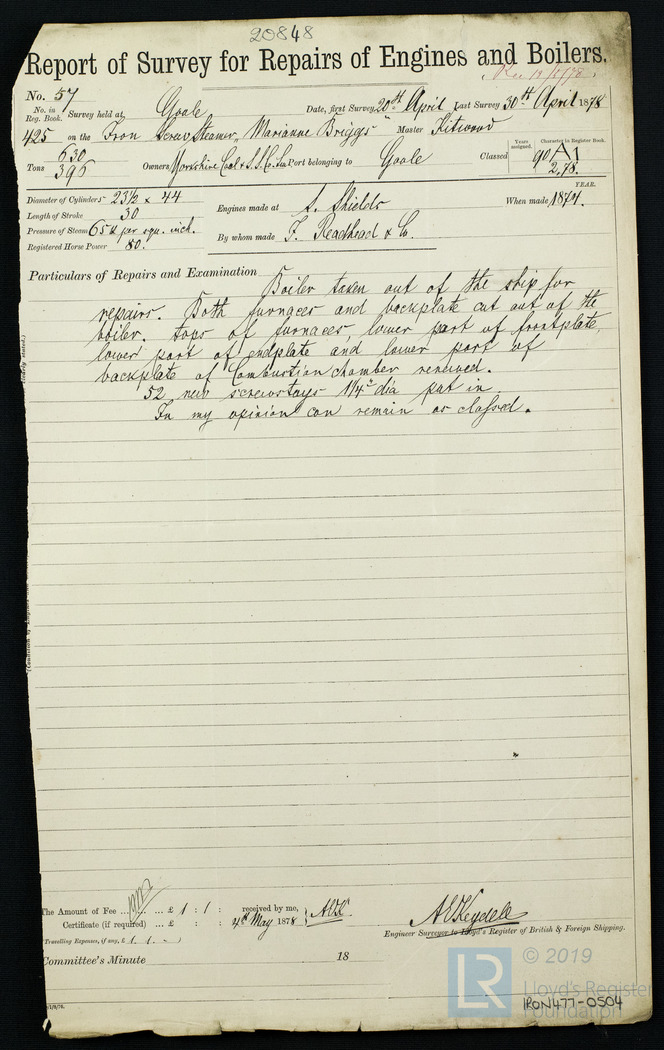 20848
Report of Survey for Repairs of Engines and Boilers.
Rec 13/5/78
No. 57
No. in Reg. Book. Survey held at Goole Date, first Survey 20th April Last Survey 30th April 1878
425 on the Iron Screw Steamer "Marianne Briggs" Master Kitwood
Tons 630
396 Owners Yorkshire Coal & S.S. Co. Lim Port belonging to Goole Classed Years assigned. 90 Character in Register Book. A1 2,78.
Diameter of Cylinders 23½ × 44
Length of Stroke 30
Pressure of Steam 65 lb per squ. inch.
Registered Horse Power 80.
Engines made at S. Shields When made YEAR. 1874.
By whom made J. Readhead & Co.
Particulars of Repairs and Examination Boiler taken out of the ship for
repairs. Both furnaces and backplate cut out of the
boiler. tops of furnaces, lower part of frontplate,
lower part of endplate and lower part of
backplate of Combustion chamber renewed.
52 new screwstays 1¼" dia put in
In my opinion can remain as classed.
The Amount of Fee ... £ 1 : 1 : received by me,
Certificate (if required) ... £ : : 4th May 1878
Travelling Expenses, if any, £ 1. 1. –
Committee's Minute 18
Engineer Surveyor to Lloyd's Register of British & Foreign Shipping.
LR © 2019
Lloyd's Register
Foundation
IRON477-0504